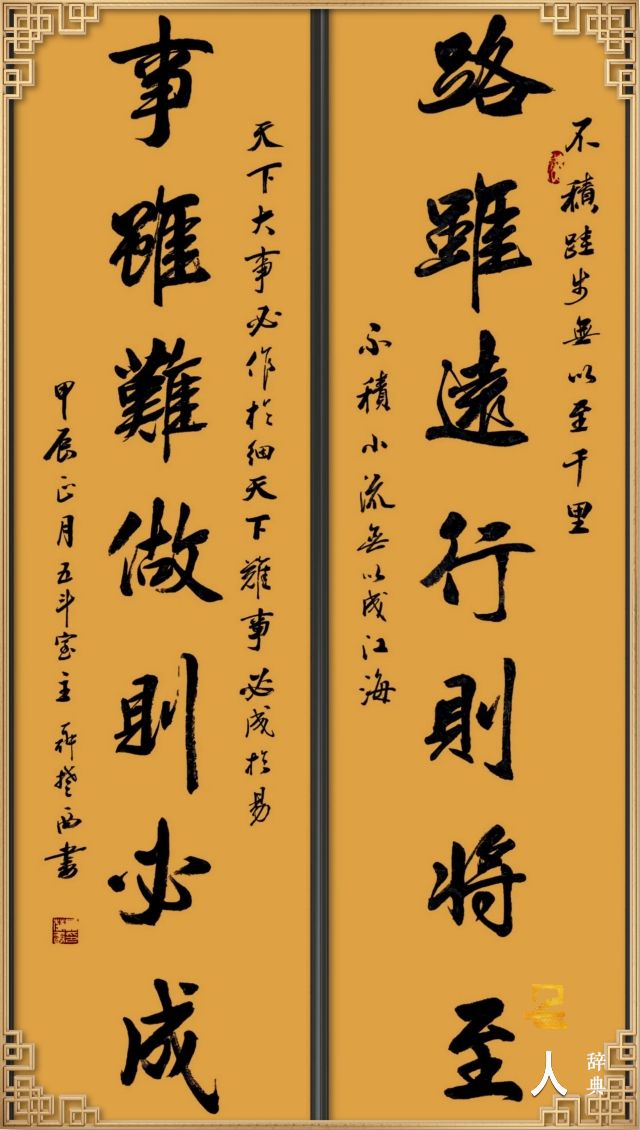 不積跬步無以至千里
路雖遠行則將至
不積小流無以成江海
天下大事必作於細天下難事必成於易
事雖難做則必成
甲辰正月五斗室主
西書
名人
辞典